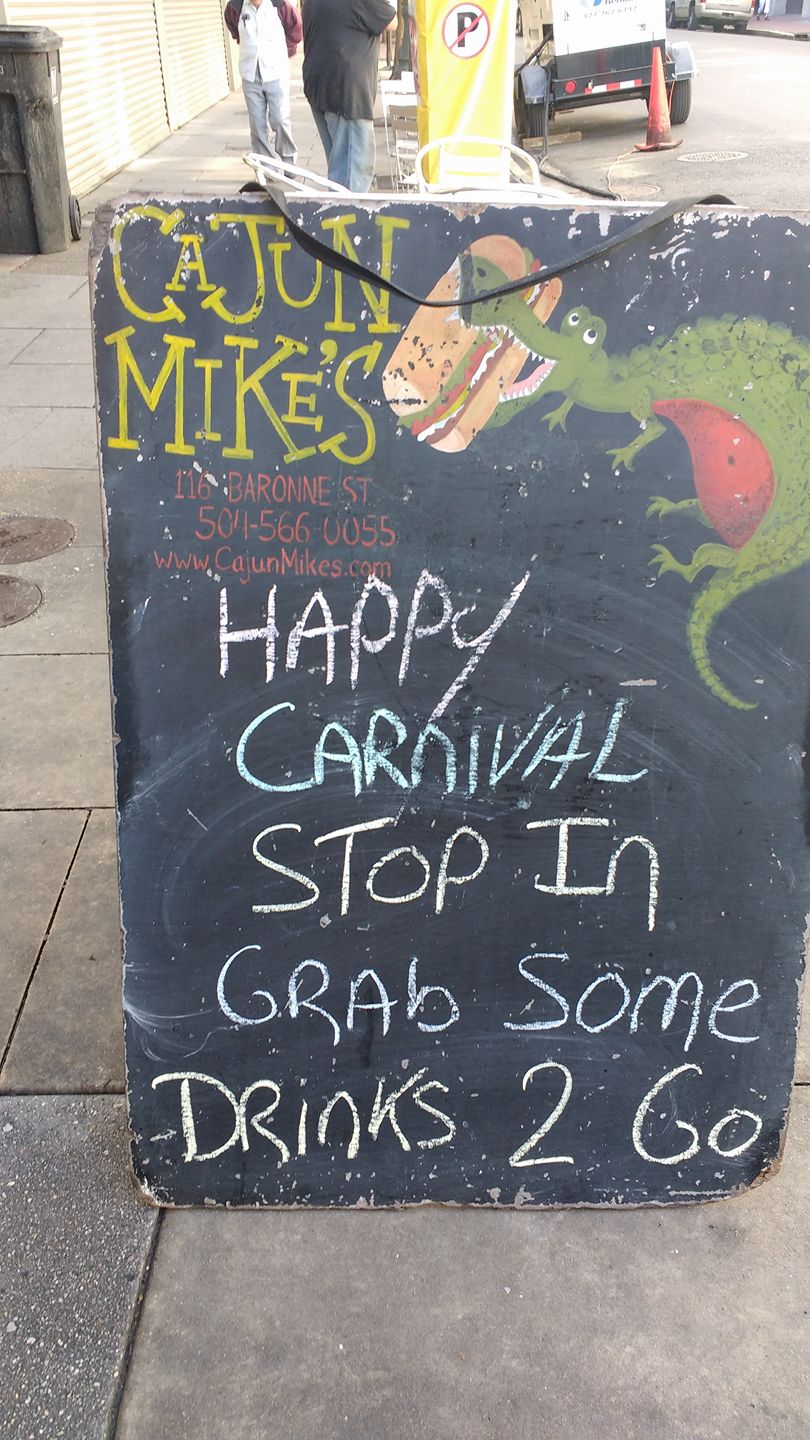 CAJUN
MIKE'S
116 BARONNE ST.
504-566-0055
www.CajunMikes.com
HAPPy
CARnIVAL
STOP In
GRAb Some
DRInKS 2 Go
P